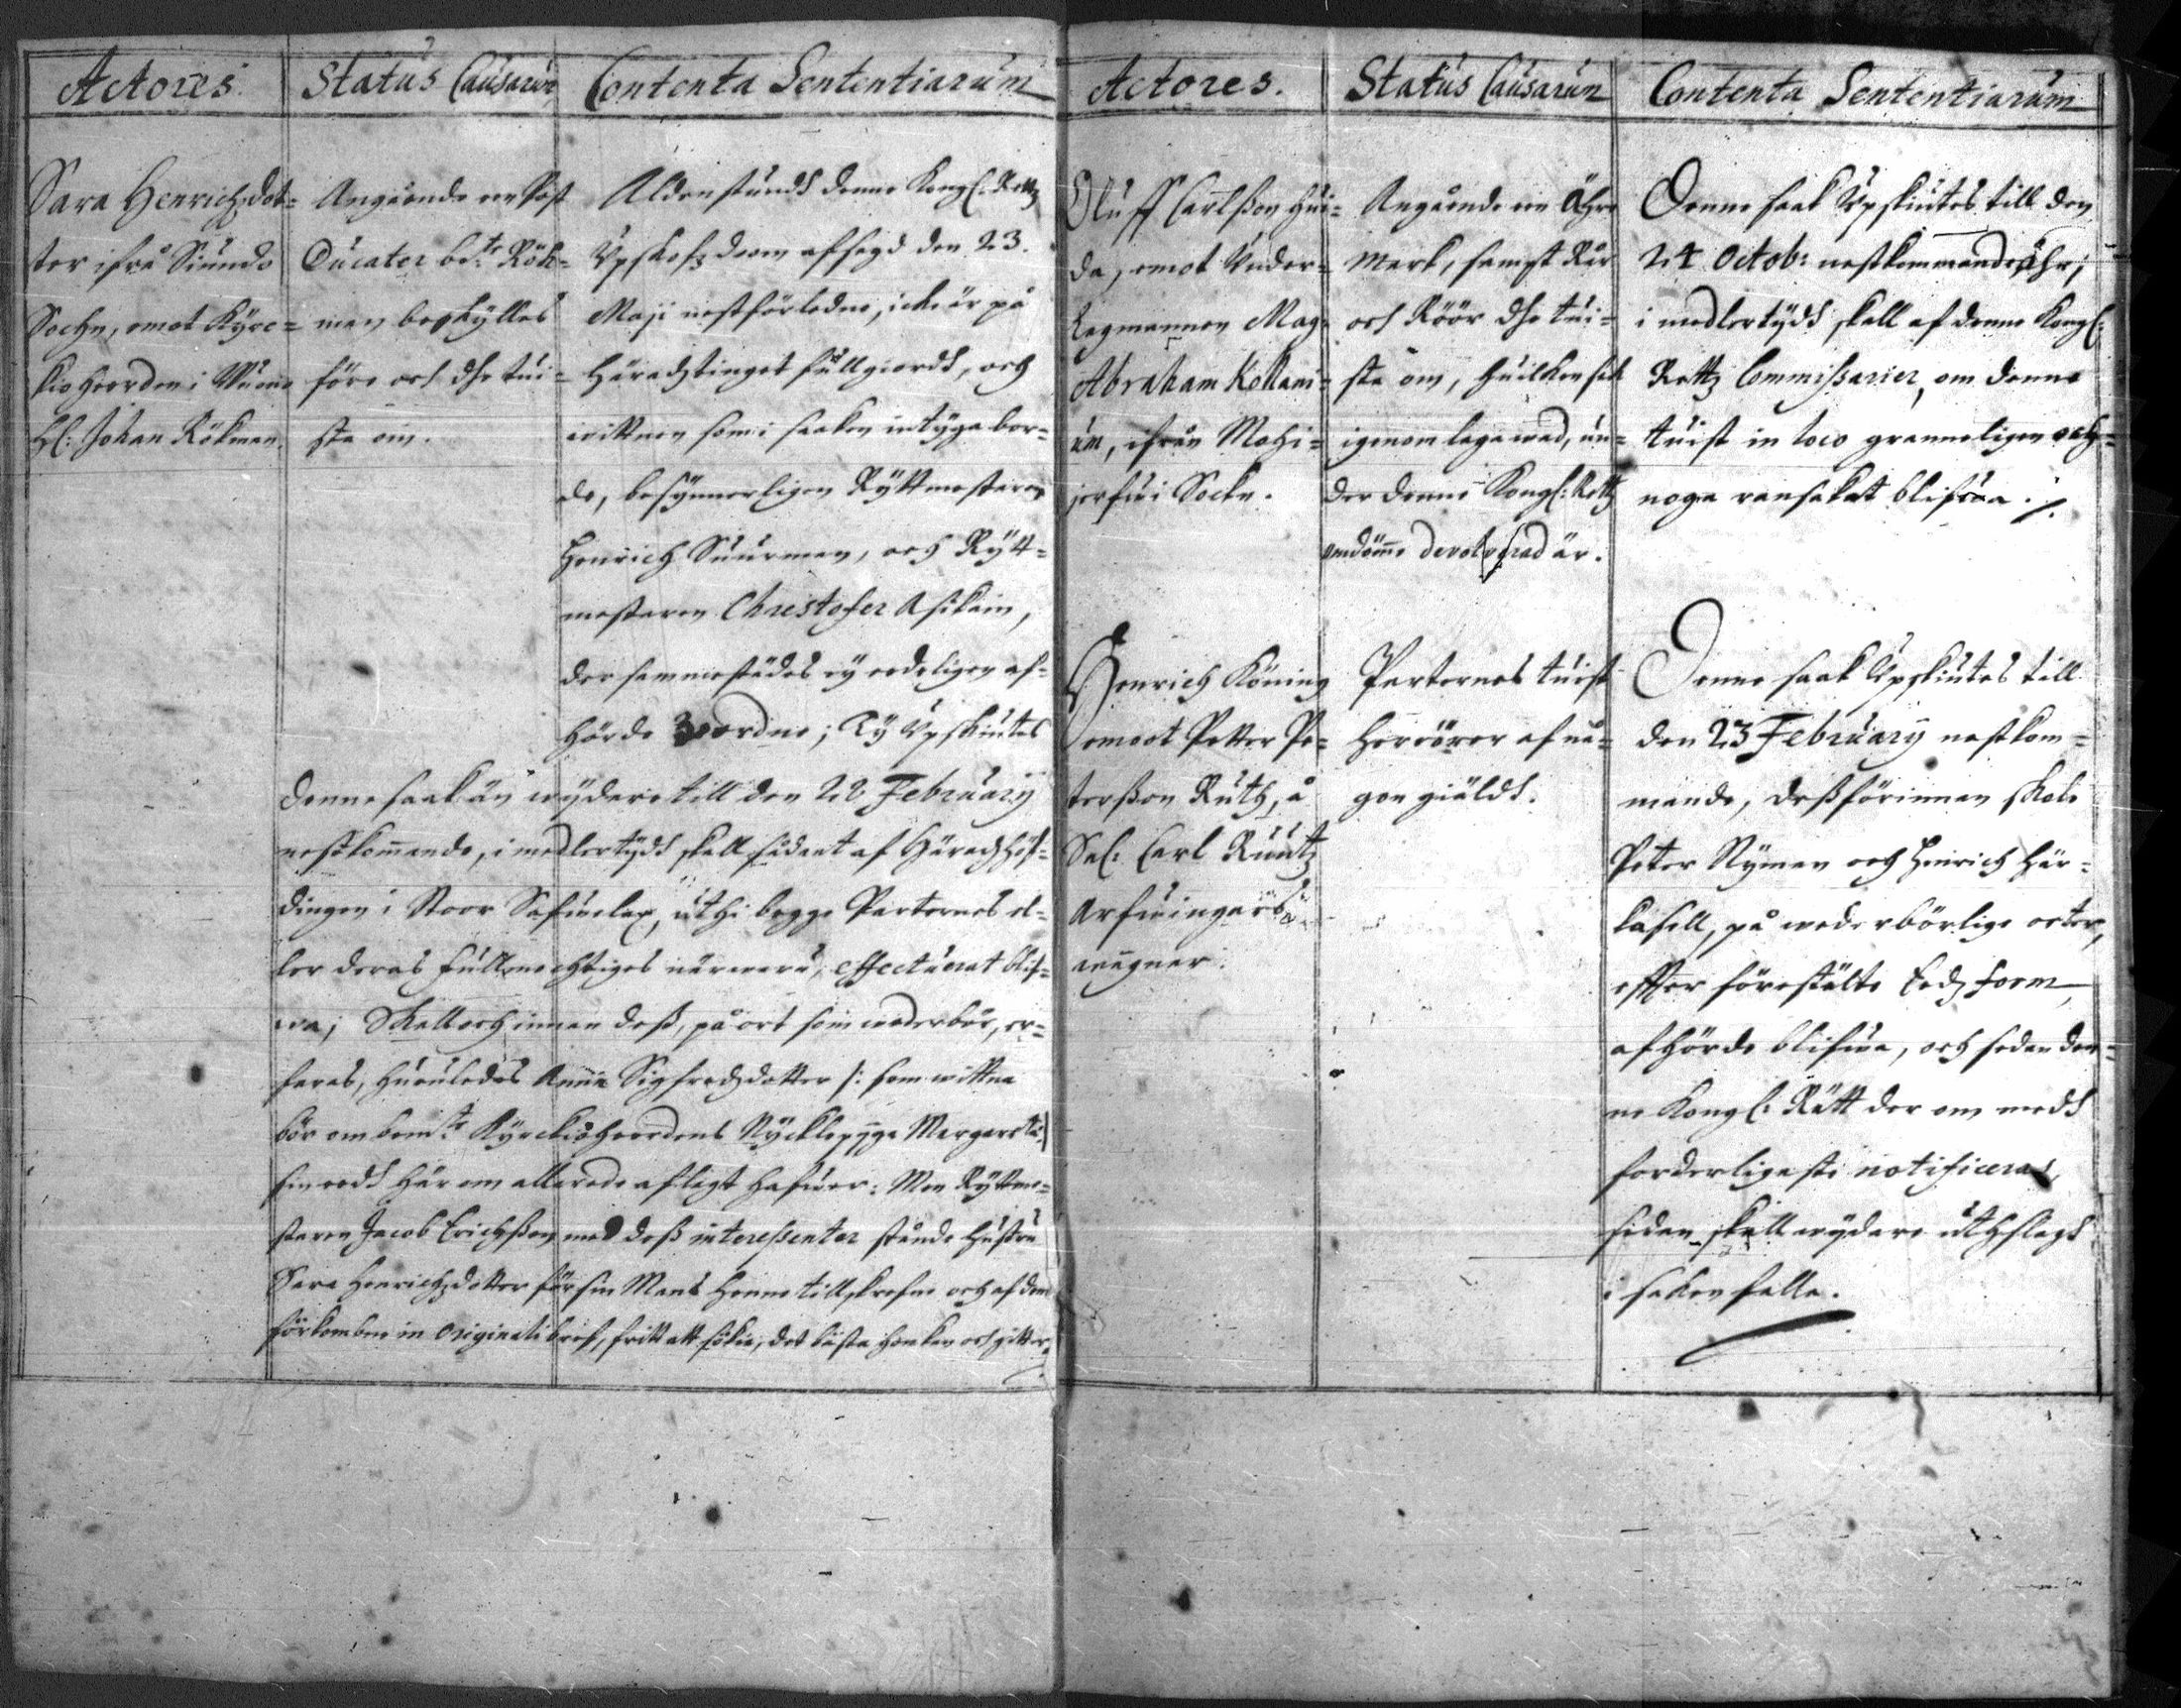 Actores.
Status Causarum
Contenta Sententiarum
Sara Henrichzdot=
ter ifrå Siundo
Sochn, emot Kyrc=
kioheerden i
Hl: Johan Rökman.
Angående een Post
Ducater be:te Rök=
man beskylles
före och dhe tui=
sta om.
Aldenstundh denne Kongl: Rettz
Upskofz doom afsagd den 23.
Maji nestförledne, icke är på
Häradztinget fullgiordh, och
wittnen som i saaken intyga bor=
de, besynnerligen Ryttmestaren
Henrich Suurman, och Rytt=
mestaren Christofer Asikain,
der sammestädes ey eedeligen af=
hörde wordne; Ty Upskiutes
denne saak än wydare till den 22 February
nestkommande, i medlertydh skall sådant af Häradzhöf=
dingen i Stoor Safwolax, uthi begge Parternes el=
ler deras fullmechtiges närwaru, effectuerat blif=
wa; Skall och innan dess, på ort som wederbör, er=
faras, huruledes Anna Sigfredzdotter /: som wittna
bör om bem:te Kyrckioheerdens Nycklepyga Margareta :/
sin eedh här om allerede aflagt hafwer: Men Ryttme=
staren Jacob Erichsson med dess interessenter stånde Hustru
Sara Henrichzdotter för sin Mans henne tillskrefne och af dem
förkombne in Originali bref, fritt att sökia, det bästa hon kan och gitter.
Actores.
Status Causarum
Contenta Sententiarum
Oluff Carlsson Hui=
da, emot Under=
Lagmannen Mag:
Abraham Kollani=
um, ifrån Mohi=
jerfwi Sockn.
Angående een Åhre
mark, sampt Rår
och Röör dhe tui=
sta om, huilken sak
igenom laga wad, un=
der denne Kongl: Rettz
omdömme devolverad är.
Denne saak Upskiutes till den
24 Octob: nestkommande Åhr,
i medlertydh skall af denne Kongl:
Rettz Commissarier, om denne
tuist in loco granneligen och
noga ransakat blifwa ./.
Henrich Köning
emoot Petter Pe=
tersson Ruth, å
Sal: Carl Ruutz
Arfwingars
wägnar.
Parternes tuist
herrörer af nå=
gon giäldh.
Denne saak Upskiutes till
den 23 February nestkom=
mande, dessförinnan skole
Peter Nyman och Hinrich Här=
kasell, på wederbörlige orter,
effter förestälte Eedz form,
afhörde blifwa, och sedan den=
ne Kongl: Rätt der om medh
forderligaste notificeras,
sedan skall wydare uthslagh
i saken falla.